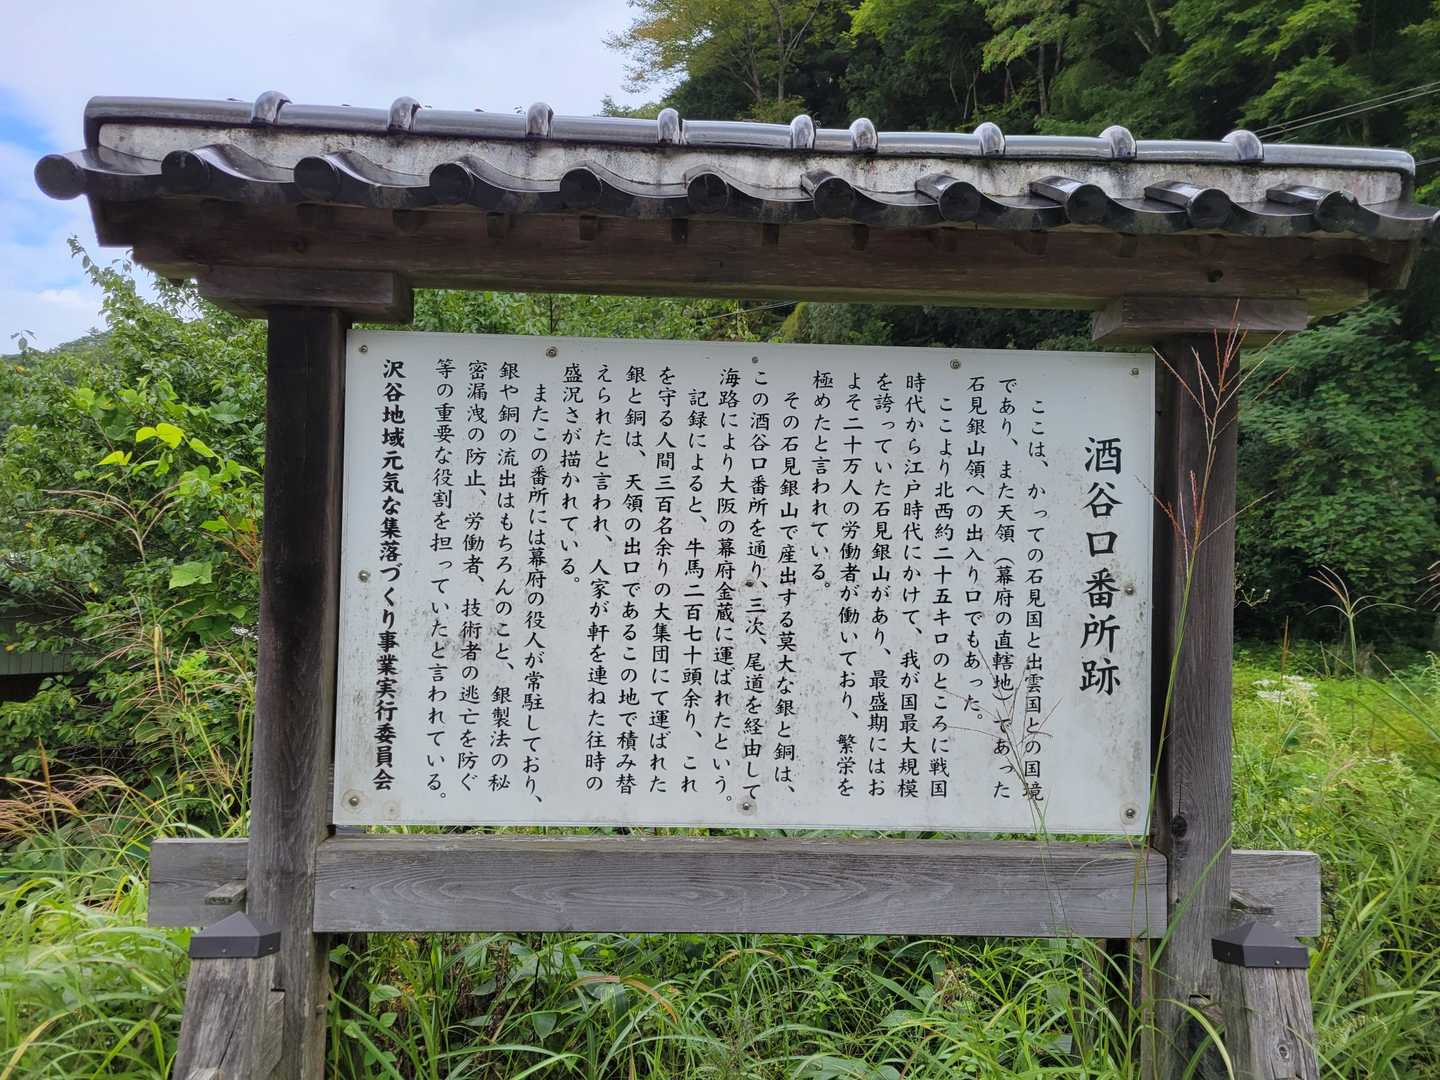 酒谷口番所跡
ここは、かっての石見国と出雲国との国境
であり、また天領（幕府の直轄地）であった
石見銀山領への出入り口でもあった。
ここより北西約二十五キロのところに戦国
時代から江戸時代にかけて、我が国最大規模
を誇っていた石見銀山があり、最盛期にはお
よそ二十万人の労働者が働いており、繁栄を
極めたと言われている。
その石見銀山で産出する莫大な銀と銅は、
この酒谷口番所を通り、三次、尾道を経由して
海路により大阪の幕府金蔵に運ばれたという。
記録によると、牛馬二百七十頭余り、これ
を守る人間三百名余りの大集団にて運ばれた
銀と銅は、天領の出口であるこの地で積み替
えられたと言われ、人家が軒を連ねた往時の
盛況さが描かれている。
またこの番所には幕府の役人が常駐しており、
銀や銅の流出はもちろんのこと、銀製法の秘
密漏洩の防止、労働者、技術者の逃亡を防ぐ
等の重要な役割を担っていたと言われている。
沢谷地域元気な集落づくり事業実行委員会